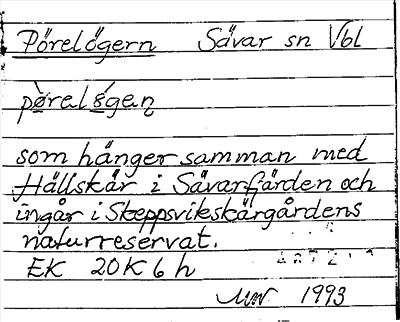 Pörelögern Sävar sn Vbl
pörelögen
som hänger samman med
Hällskär i Sävarfjärden och
ingår i Skeppsvikskärgårdens
naturreservat.
EK 20K 6h
1993